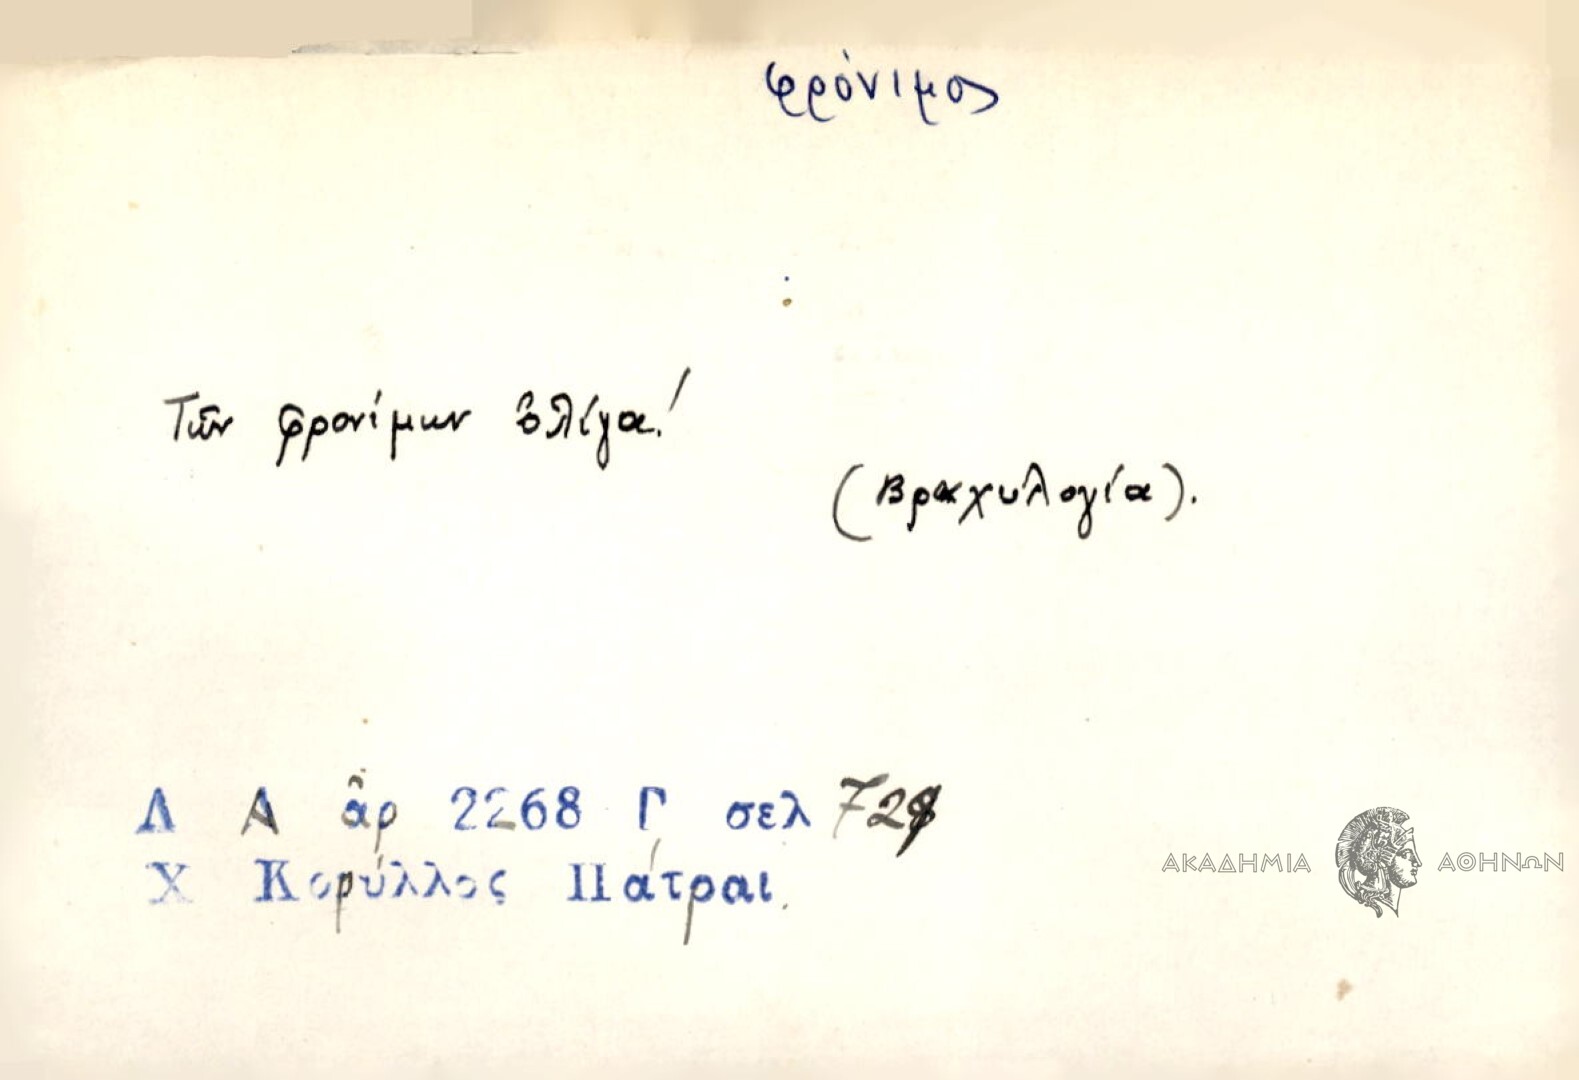 φρόνιμος
Τῶν φρονίμων ὀλίγα!
(Βραχυλογία).
Λ Α ἀρ 2268 Γ σελ
Χ Κορύλλος Πάτραι.
ΑΚΑΔΗΜΙΑ ΑΘΗΝΩΝ